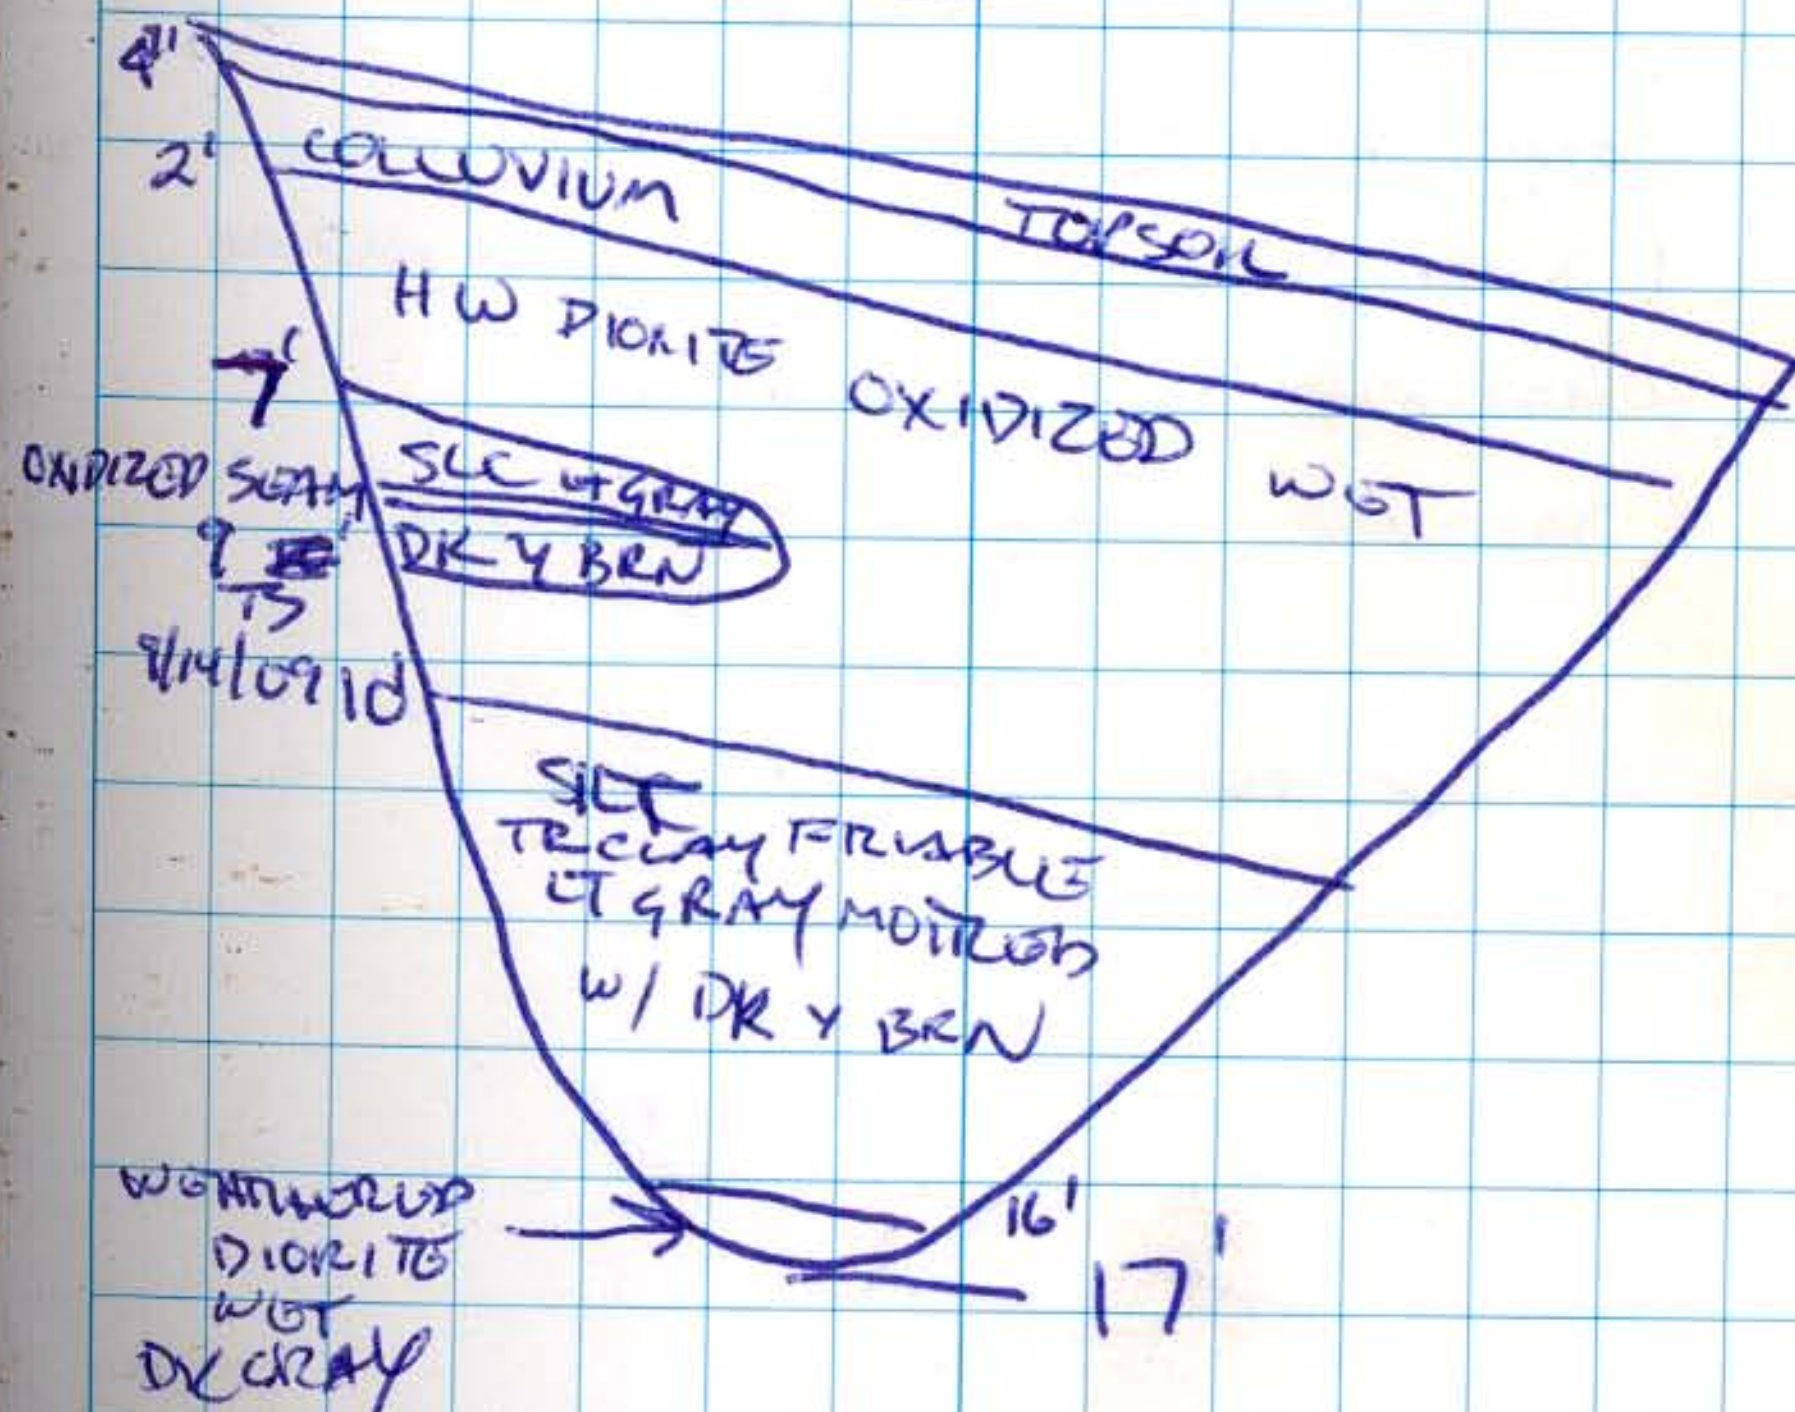 4"
TOPSOIL
2' COLLUVIUM
HW DIORITE OXIDIZED WET
7'
OXIDIZED SEAM
SLC LT GRAY
9
DK Y BRN
TB
9/14/09
10'
SILT
TR CLAY FRIABLE
LT GRAY MOTTLED
W/ DK Y BRN
WEATHERED
DIORITE
WET
DK GRAY
16'
17'